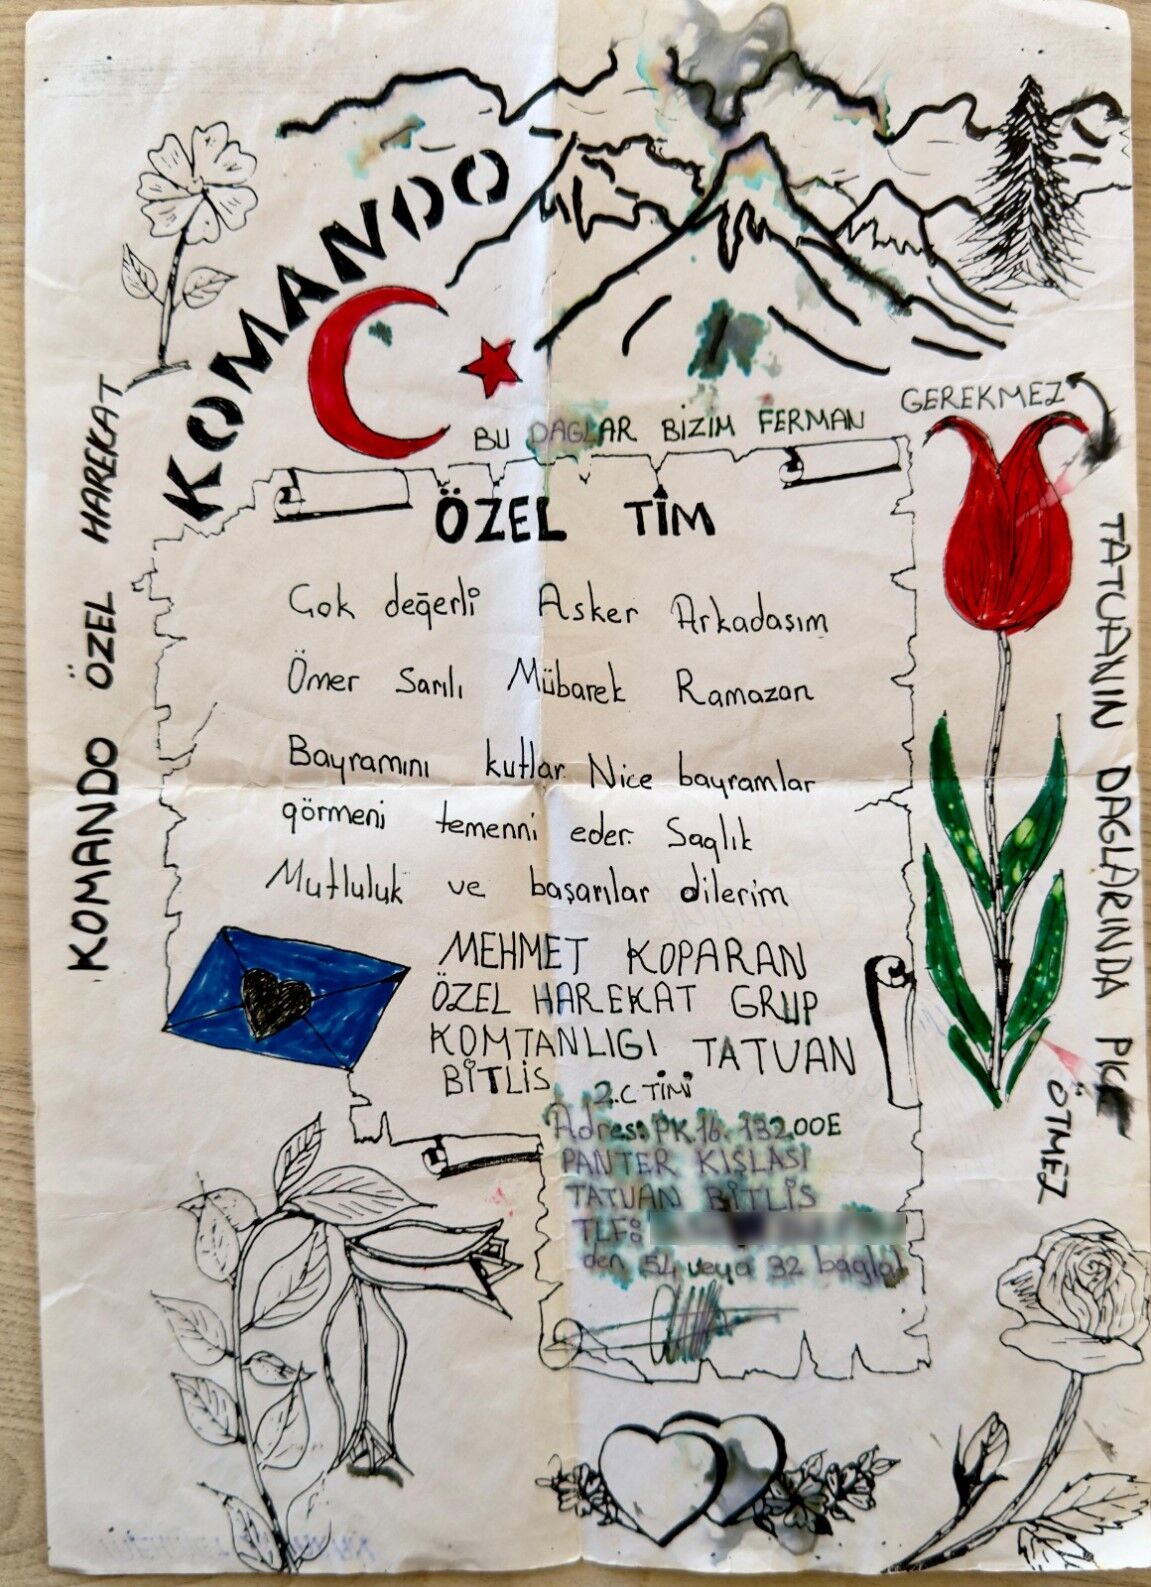 KOMANDO
KOMANDO ÖZEL HAREKAT
BU DAGLAR BİZİM FERMAN
GEREKMEZ
ÖZEL TİM
Çok değerli Asker Arkadaşım
Ömer Sarılı Mübarek Ramazan
Bayramını kutlar Nice bayramlar
görmeni temenni eder. Saglık
Mutluluk ve başarılar dilerim
MEHMET KOPARAN
ÖZEL HAREKAT GRUP
KOMTANLIGI TATUAN
BİTLİS
2.C TİMİ
Adres: PK.16. 13200E
PANTER KIŞLASI
TATUAN BİTLİS
TLF:
den 54 veya 32 bagla
TATUANIN DAGLARINDA PKK
ÖTMEZ